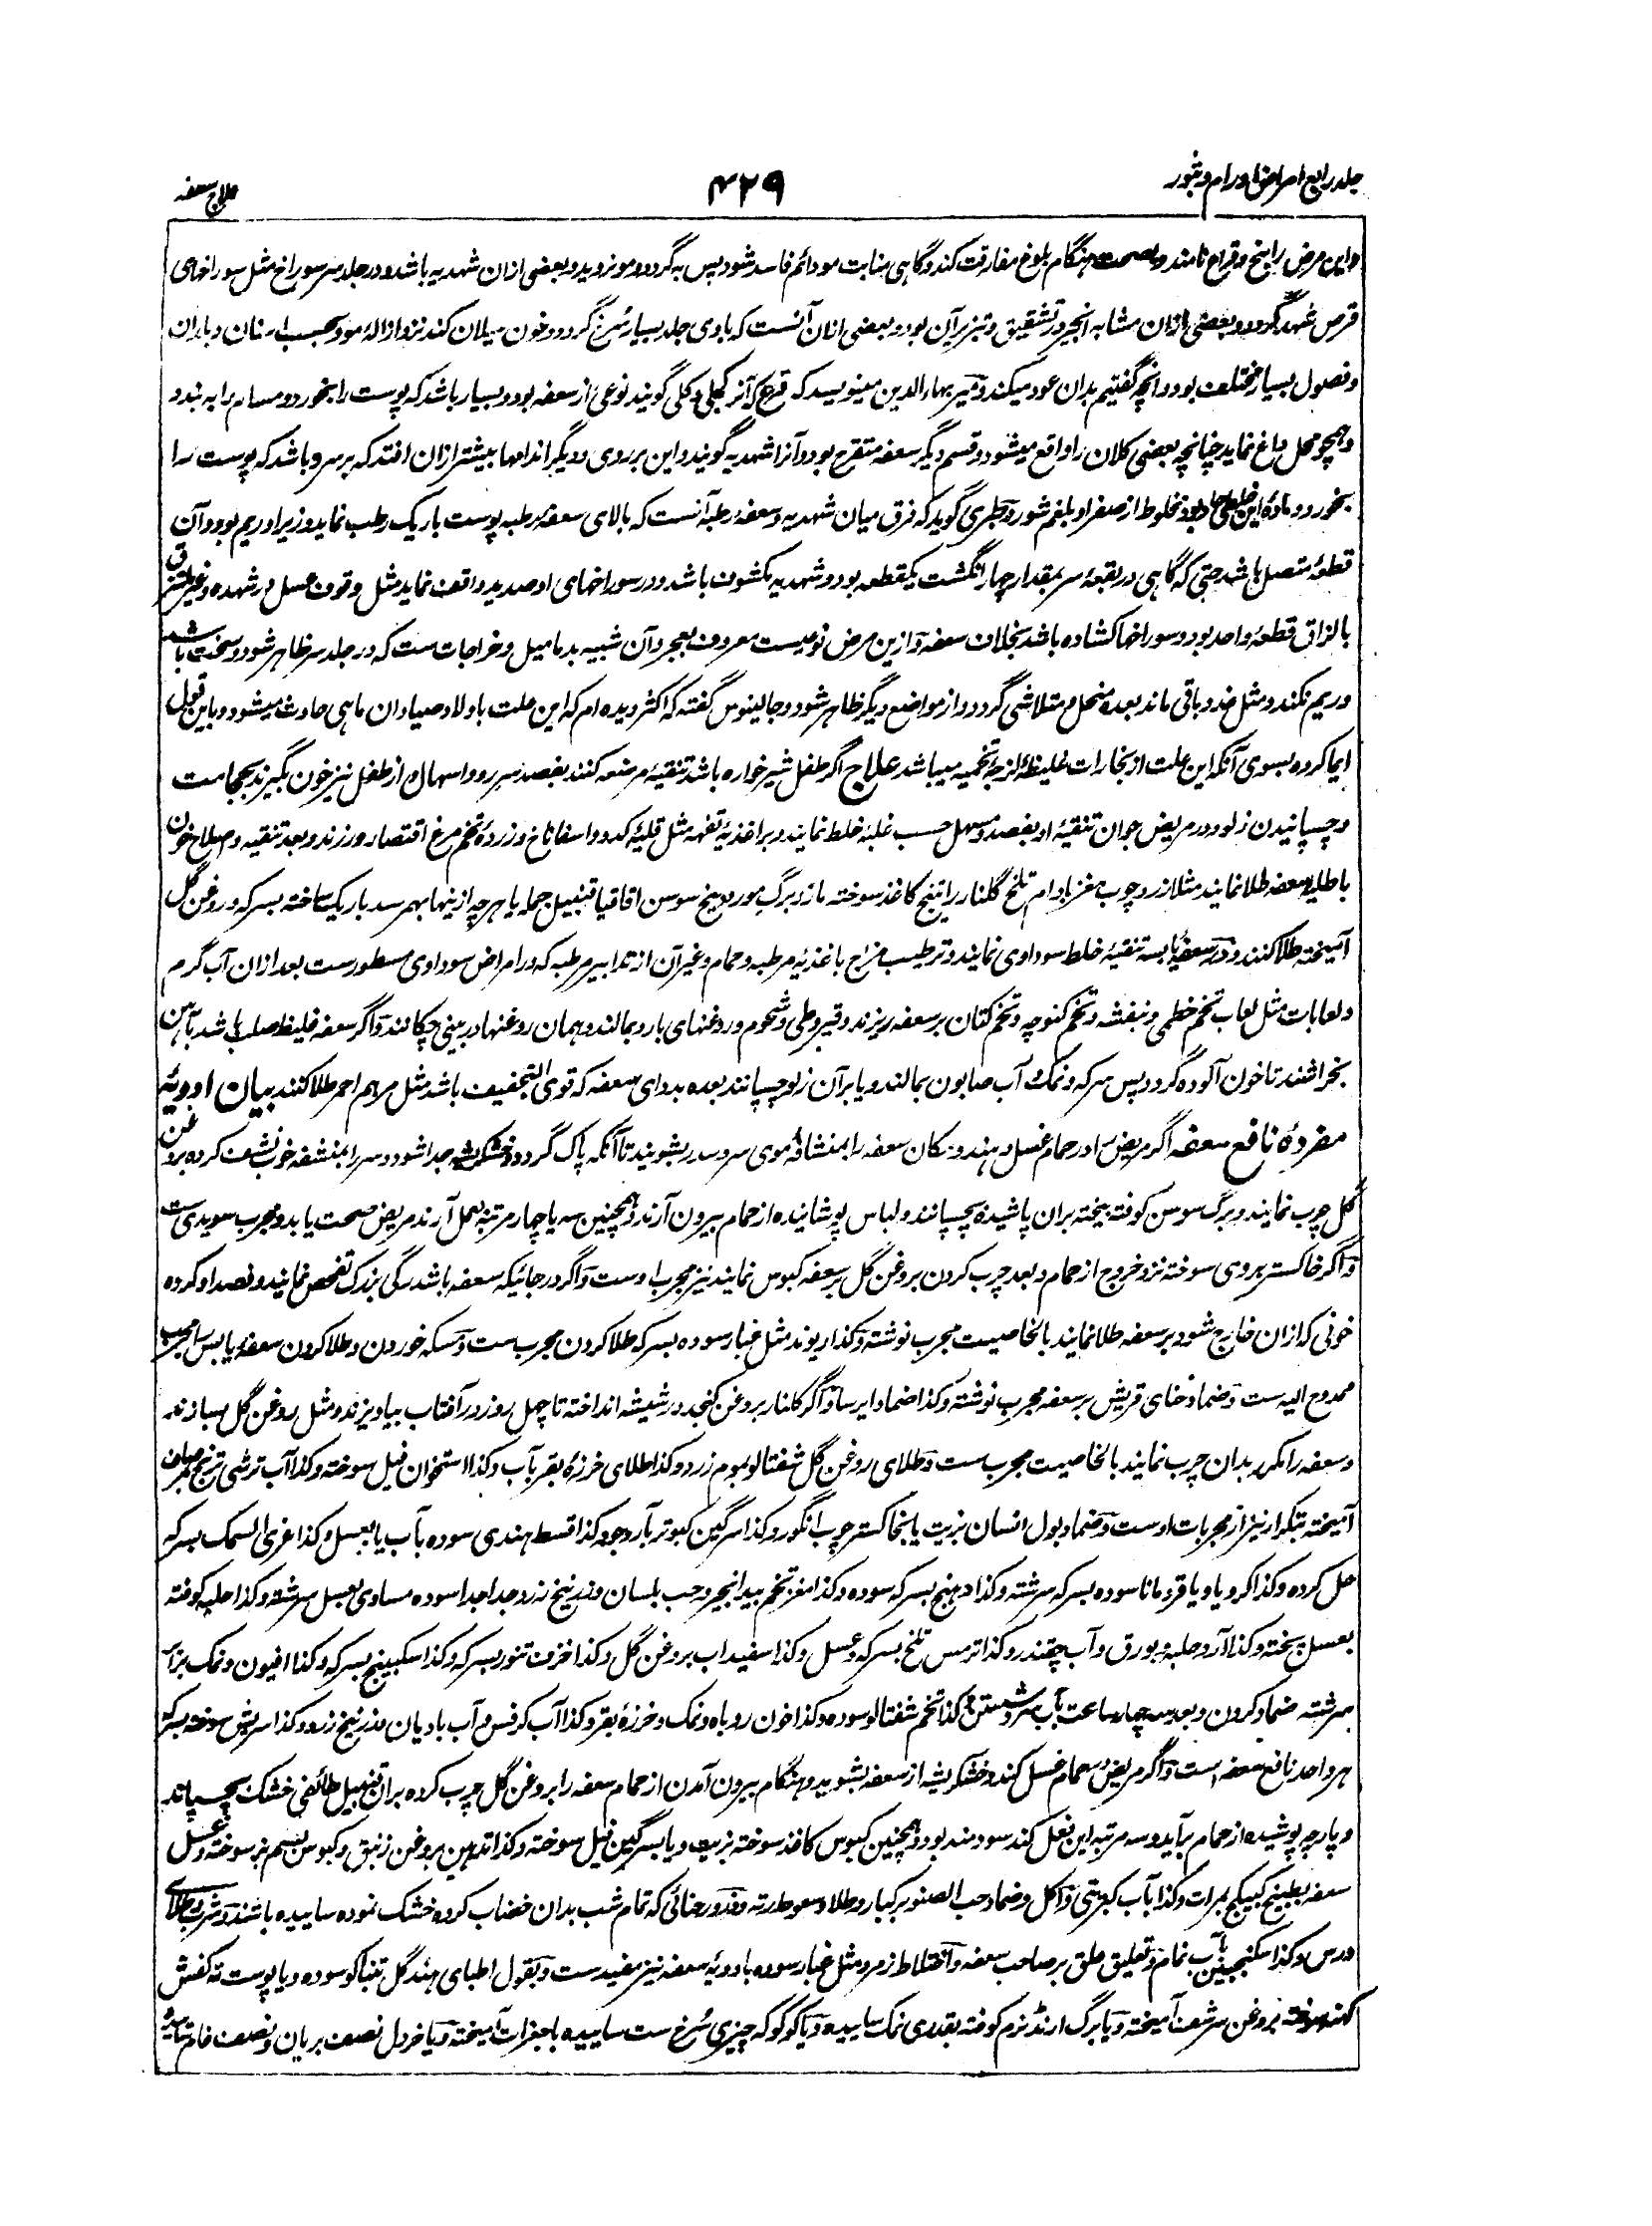 جلد رابع امراض اورام و بثور
۴۲۹
علاج سعفه
و این مرض را بنخ و قراع نامند و هنگام بلوغ مفارقت کند و گاهی منابت مو دائم فاسد شود پس به گردد و مو نروید و بعضی ازان شهدیه باشد و در جلد سر سوراخ مثل سوراخهای
قرص شهد گردد و بعضی ازان مشابه انجیر در تشقیق و تبزیر آن بود و بعضی ازان آنست که باوی جلد بسیار سُرخ گردد و خون سیلان کند نزد ازالهٔ مو و بحسب اسنان و بلدان
و فصول بسیار مختلف بود و آنچه گفتیم بدان عود میکند و میر بهاءالدین مینویسد که قرع که آنرا کچلی و کلی گویند نوعی از سعفه بود و بسیار باشد که پوست را بخورد و مسام را به بندد
و همچو محل داغ نماید چنانچه بعضی کلان را واقع میشود و قسم دیگر سعفه متقرح بود و آنرا شهدیه گویند و این بر روی و دیگر اندامها بیشتر ازان افتد که بر سر و باشد که پوست را
بخورد و مادهٔ این خلطی حاد بود مخلوط از صفرا و بلغم شور و طبری گوید که فرق میان شهدیه و سعفهٔ رطبه آنست که بالای سعفهٔ رطبه پوست باریک رطب نماید و زیر او ریم بود و آن
قطعهٔ متصل باشد حتی که گاهی در بقعهٔ سر بمقدار چهار انگشت یک قطعه بود و شهدیه مکشوف باشد و در سوراخهای او صدید واقف نماید مثل وقوف عسل در شهده و غیر ملتزق
بالزاق قطعهٔ واحد بود و سوراخها کشاده باشد بخلاف سعفه و ازین مرض نوعیست معروف بعجر و آن شبیه بدمامیل و خراجات ست که در جلد سر ظاهر شود و سخت باشد
و ریم نکند و مثل غدد باقی ماند بعده منحل و متلاشی گردد و از مواضع دیگر ظاهر شود و جالینوس گفته که اکثر دیده‌ام که این علت باولاد صیادان ماهی حادث میشود و باین قول
ایما کرده بسوی آنکه این علت از بخارات غلیظهٔ لزجهٔ تخمیه میباشد علاج اگر طفل شیرخواره باشد تنقیهٔ مرضعه کنند بفصد سررو و اسهال و از طفل نیز خون بگیرند بحجامت
و چسپانیدن زلو و در مریض جوان تنقیهٔ او بفصد و مسهل حسب غلبهٔ خلط نمایند و بر اغذیهٔ تفهه مثل قلیهٔ کدو و اسفاناخ و زردهٔ تخم مرغ اقتصار ورزند و بعد تنقیه و اصلاح خون
باطلیهٔ سعفه طلا نمایند مثلا زردچوب مغز بادام تلخ گلنار راتینج کاغذ سوخته مازو برگ مورد بیخ سوسن اقاقیا قنبیل جمله یا هرچه ازینها بهمرسد باریک ساخته بسرکه و روغن گل
آمیخته طلا کنند و در سعفهٔ یابسه تنقیهٔ خلط سوداوی نمایند و ترطیب مزاج باغذیهٔ مرطبه و حمام و غیر آن از تدابیر مرطبه که در امراض سوداوی مسطورست بعد ازان آب گرم
و لعابات مثل لعاب تخم خطمی و بنفشه و تخم کنوچه و تخم کتان بر سعفه ریزند و قیروطی و شحوم و روغنهای بارد بمالند و همان روغنها در بینی چکانند و اگر سعفه غلیظ و صلب باشد بآهن
بخراشند تا خون آلوده گردد پس سرکه و نمک و آب صابون بمالند و یا بر آن زلو چسپانند بعده بدوای سعفه که قوی التجفیف باشد مثل مرهم احمر طلا کنند بیان ادویهٔ
مفردهٔ نافع سعفه اگر مریض را در حمام غسل دهند و مکان سعفه را بمنشافهٔ موی سر و سدر بشویند تا آنکه پاک گردد و خشکریشه جدا شود و سر را بمنشفه خوب نشف کرده بروغن
گل چرب نمایند و برگ سوسن کوفته بیخته بران پاشیده بچسپانند و لباس پوشانیده از حمام بیرون آرند و همچنین سه یا چهار مرتبه بعمل آرند مریض صحت یابد و مجرب سویدی ست
و اگر خاکستر بردی سوخته نزد خروج از حمام و بعد چرب کردن بروغن گل بر سعفه کبوس نمایند نیز مجرب اوست و اگر در جائیکه سعفه باشد رگی بزرگ تفحص نمایند و فصد او کرده
خونی که ازان خارج شود بر سعفه طلا نمایند بالخاصیت مجرب نوشته و کذا ریوند مثل غبار سوده بسرکه طلا کردن مجرب ست و مسکه خوردن و طلا کردن سعفهٔ یابس را مجرب
ممدوح الیه ست و ضماد خنای قریش بر سعفه مجرب نوشته و کذا ضماد ایرسا و اگر گلنار بروغن کنجد در شیشه انداخته تا چهل روز در آفتاب بیاویزند و مثل روغن گل بسازند
و سعفه را مکرر بدان چرب نمایند بالخاصیت مجرب ست و طلای روغن گل شفتالو بموم زرد و کذا طلای خرزهٔ بقر بآب و کذا استخوان فیل سوخته و کذا آب ترشی ترنج
آمیخته بتکرار نیز از مجربات اوست و ضماد بول انسان بزیت یا بخاکستر چوب انگور و کذا سرگین کبوتر بآرد جو و کذا قسط هندی سوده بآب یا بعسل و کذا غری السمک بسرکه
حل کرده و کذا کرویا و یا قردمانا سوده بسرکه سرشته و کذا دهنج بسرکه سوده و کذا مغز تخم بیدانجیر و حب بلسان و زرنیخ زرد جدا جدا سوده مساوی بعسل سرشته و کذا حلبه کوفته
بعسل پخته و کذا آرد حلبه و بورق و آب چقندر و کذا ترمس تلخ بسرکه و عسل و کذا سفیداب بروغن گل و کذا خزف تنور بسرکه و کذا سکبینج بسرکه و کذا افیون و نمک
سرشته ضماد کردن و بعد سه چهار ساعت بآب سرد شستن و کذا تخم شفتالو سوده و کذا خون روباه و نمک و خرزهٔ بقر و کذا آب کرفس و آب بادیان و زرنیخ زرد و کذا سریش سوخته بسرکه
هر واحد نافع سعفه است و اگر مریض در حمام غسل کند و خشکریشه از سعفه بشوید و هنگام بیرون آمدن از حمام سعفه را بروغن گل چرب کرده بران قنبیل طائفی خشک بچسپاند
و پارچه پوشیده از حمام برآید و سه مرتبه این فعل کند سودمند بود و همچنین کبوس کاغذ سوخته بزیت و یا بسرگین فیل سوخته و کذا تدهین بروغن زنبق و کبوس سم بز سوخته و غسل
سعفه بطبیخ کبیکج بمرات و کذا بآب کبریتی و اکل و ضماد حب الصنوبر کبار و طلا و سعوط رته و ذرور حنائی که تمام شب بدان خضاب کرده خشک نموده ساییده باشند و شرب و طلای
ورس و کذا سکنجبین بآب نمام و تعلیق علق بر صاحب سعفه و اختلاط زمرد مثل غبار سوده بادویهٔ سعفه نیز مفیدست و بقول اطبای هند گل تنباکو سوده و یا پوست ته کفش
کهنه سوخته بروغن سرشف آمیخته و یا برگ ارنڈ نرم کوفته بقدری نمک ساییده و یا کوکو که چیزی سُرخ ست ساییده با جغرات آمیخته و یا خردل نصف بریان و نصف خام ساییده